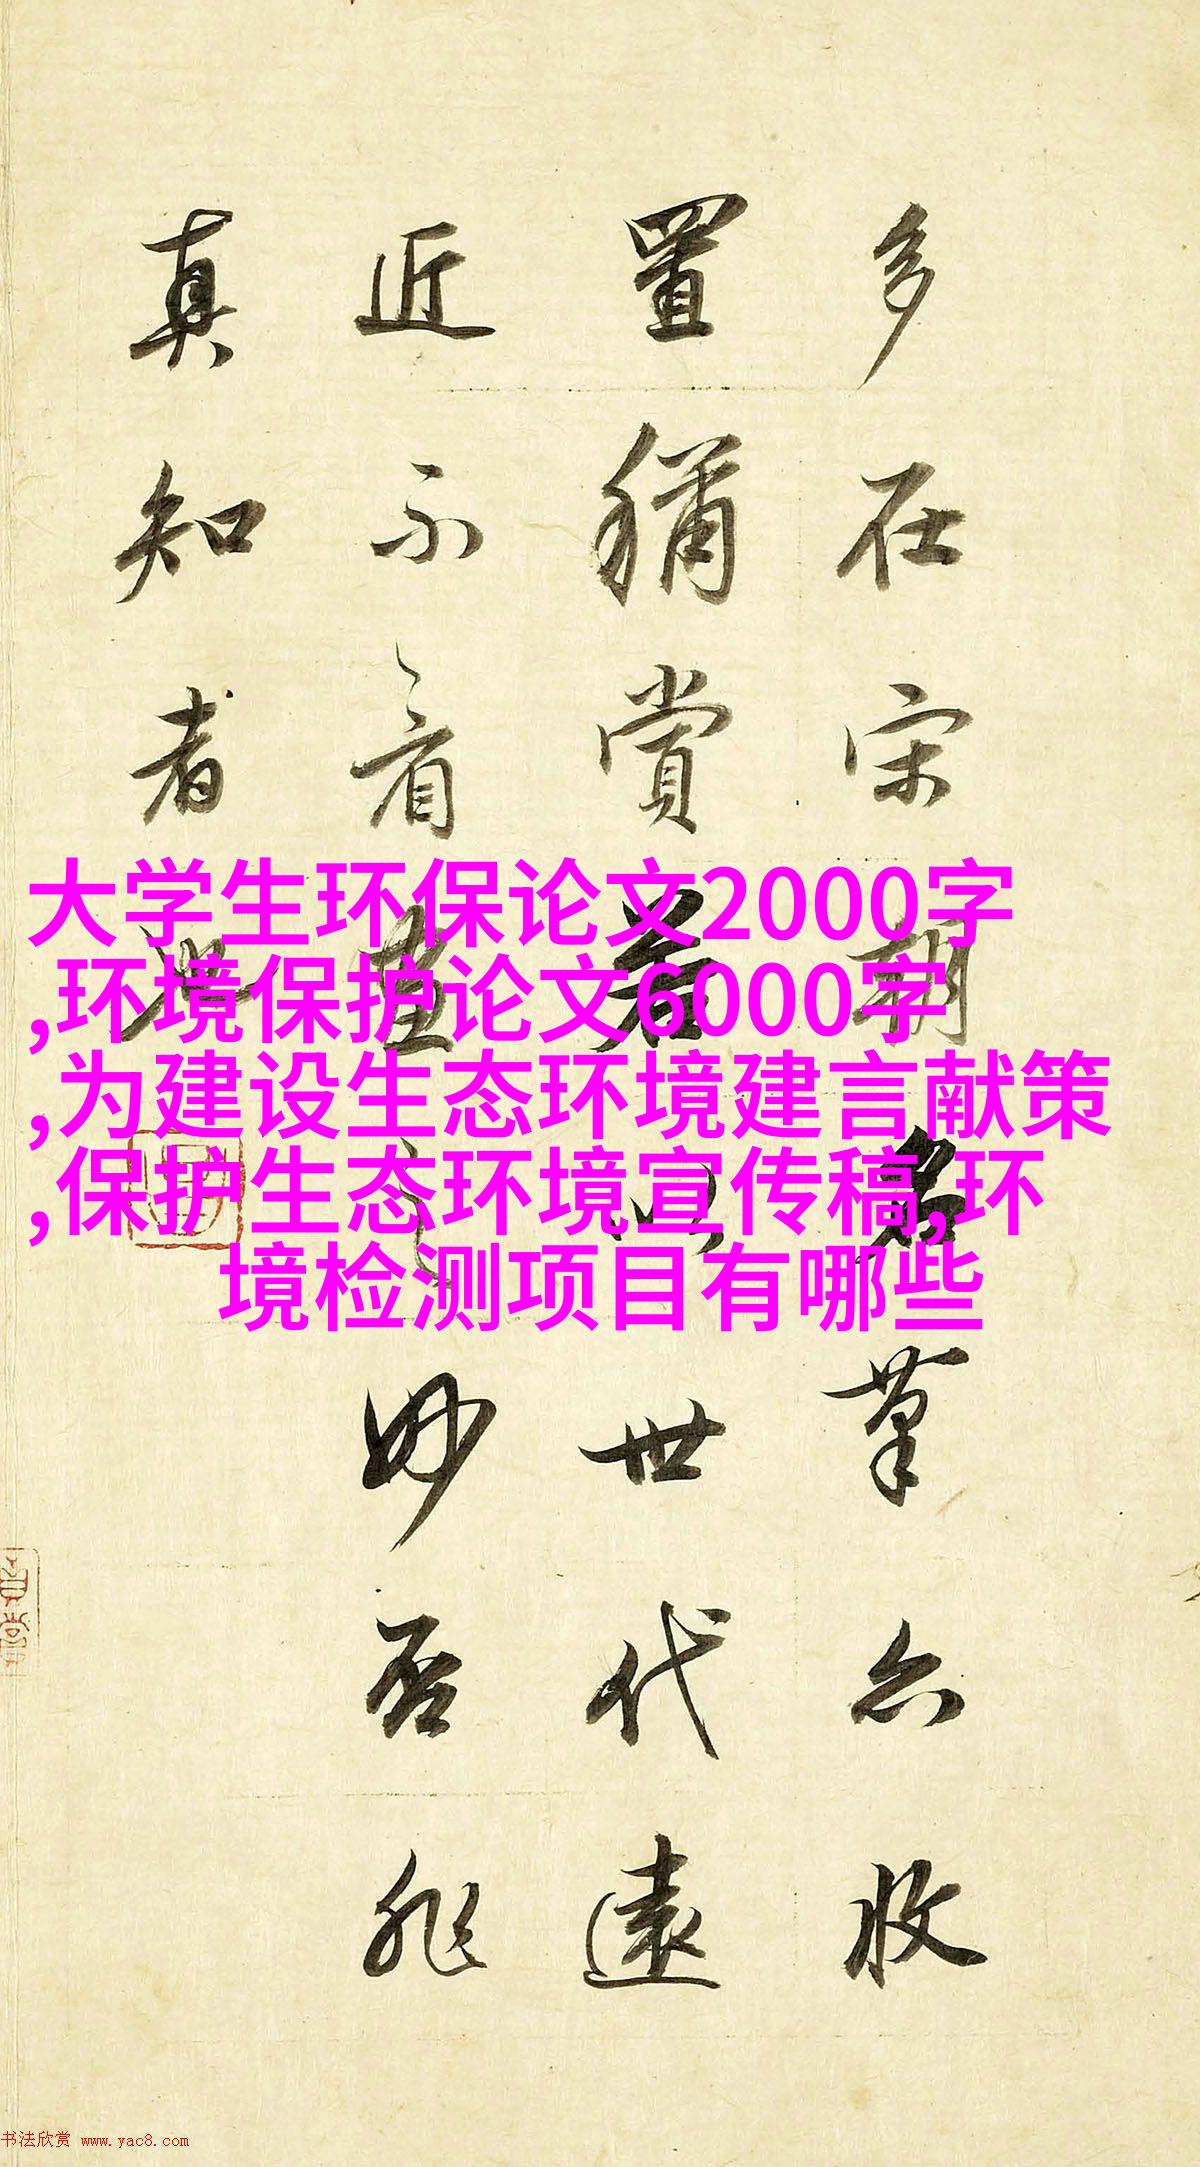 多在宋朝名筆亦收
置稱賞若以世代遠
近不看畫之妙否非
真知者也
大学生环保论文2000字
,环境保护论文6000字
,为建设生态环境建言献策
,保护生态环境宣传稿,环
境检测项目有哪些
书法欣赏 www.yac8.com